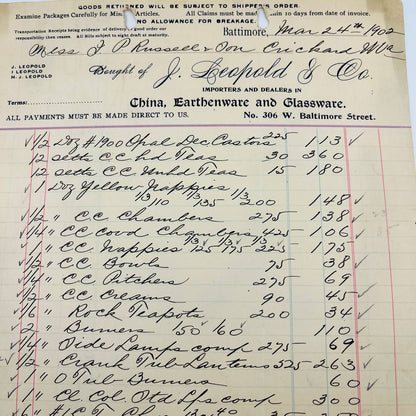 GOODS RETURNED WILL BE SUBJECT TO SHIPPER'S ORDER.
Examine Packages Carefully for Articles. All Claims must be in 10 days from date of invoice.
NO ALLOWANCE FOR BREAKAGE.
Transportation Receipts being evidence of delivery of good order our
responsibility then ceases. All Bills subject to sight draft at maturity.
Baltimore, Mar 24th 1902
Mess J P Russell & Son Crickard WVa
J. LEOPOLD
I LEOPOLD
M. J. LEOPOLD
Bought of J. Leopold & Co.
IMPORTERS AND DEALERS IN
Terms:
China, Earthenware and Glassware.
ALL PAYMENTS MUST BE MADE DIRECT TO US.
No. 306 W. Baltimore Street.
1/2 Doz #1900 Opal Dec Castors 225 113
12 setts CC hd Teas 30 360
12 setts CC Unhd Teas 15 180
1 Doz Yellow Nappies
1/3 110 1/3 135 1/3 200 148
1/2 " CC Chambers 275 138
1/4 " CC Covd Chambers 425 106
1 " CC Nappies 1/3 125 1/3 175 1/3 225 175
1/2 " CC Bowls 75 38
1/4 " CC Pitchers 275 69
1/2 " CC Creams 90 45
1/6 " Rock Teapots 200 34
2 " Burners 50 60 110
1/4 " Side Lamps comp 275 69
1/2 " Crank Tub Lanterns 525 263
1 " O Tub Burners 60
1 " Cl Col Otd Lps comp 300